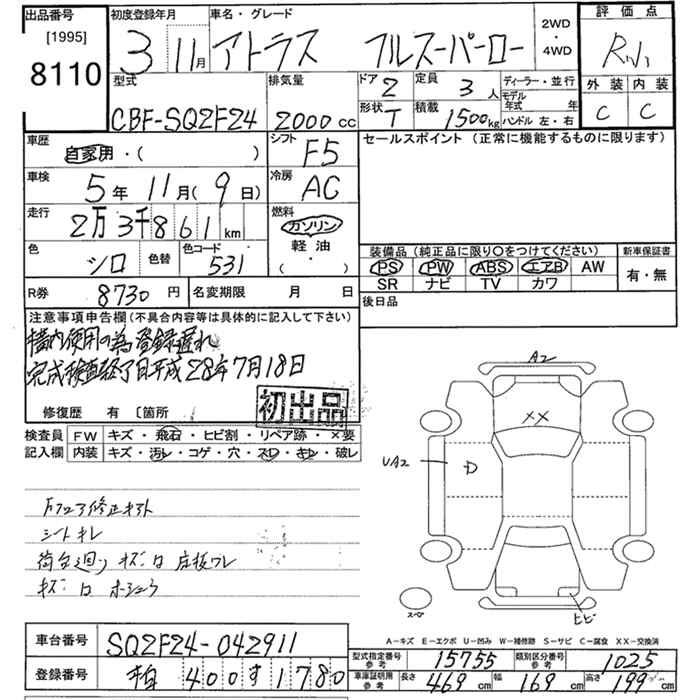 出品番号 初度登録年月 車名・グレード 2WD・4WD 評価点
[1995] 3 11月 アトラス フルスーパーロー
8110
型式 排気量 ドア 2 定員 3人 ディーラー・並行 外装 内装
CBF-SQ2F24 2000cc 形状 T 積載 1500kg モデル年式 年 C C
ハンドル 左・右
車歴 シフト セールスポイント (正常に機能するものに限ります)
自家用・( ) F5
車検 冷房
5年 11月( 9日) AC
走行 燃料
2万3千861km ガソリン
色 色替 色コード 軽油 装備品(純正品に限り○をつけてください) 新車保証書
シロ 531 (・) PS PW ABS エアB AW 有・無
SR ナビ TV カワ
R券 8730円 名変期限 月 日 後日品
注意事項申告欄(不具合内容等は具体的に記入して下さい)
構内使用の為登録遅れ
完成検査終了日平成28年7月18日
修復歴 有 〔箇所
初出品
検査員 FW キズ・飛石・ヒビ割・リペア跡・×要
記入欄 内装 キズ・汚レ・コゲ・穴・スレ・キレ・破レ
A2
XX
UA2 D
シートキレ
荷台廻り キズ 床板ワレ
スペア
ヒビ
A-キズ E-エクボ U-凹み W-補修跡 S-サビ C-腐食 XX-交換済
車台番号 SQ2F24-042911
型式指定番号 参考 15755 類別区分番号 参考 1025
登録番号 柏 400す1780
車庫証明用 参考 長さ 469cm 幅 169cm 高さ 199cm